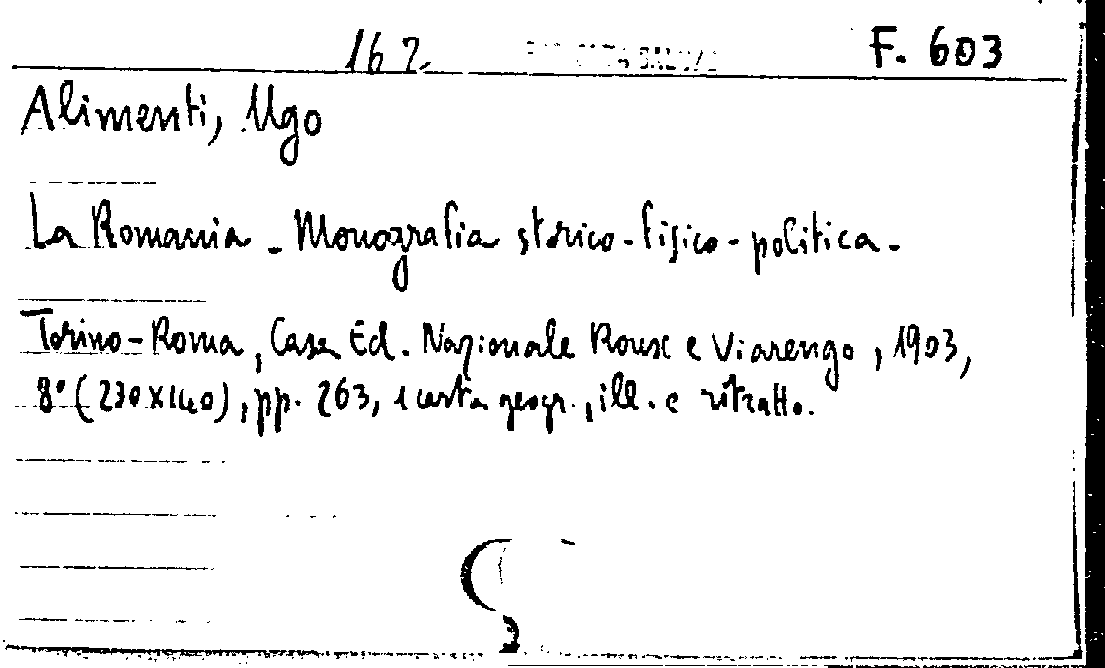 162 F. 603
Alimenti, Ugo
La Romania - Monografia storico-fisico-politica.
Torino-Roma, Casa Ed. Nazionale Roux e Viarengo, 1903,
8° (230x140), pp. 263, 1 carta geogr., ill. e ritratto.